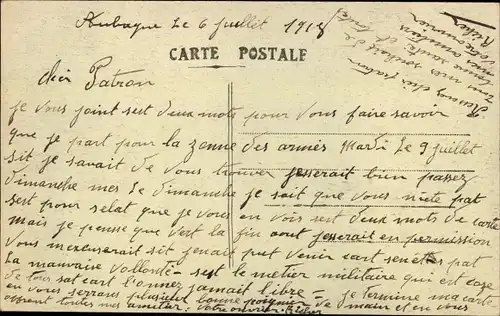 Aubagne Le 6 Juillet 1918
CARTE POSTALE
cher Patron
je vous joint sest deux mots pour vous faire savoir
que je part pour la zonne des armées Mardi Le 9 juillet
sit je savait de vous trouver jesserait bien passez
dimanche mes Le dimanche je sait que vous nete pat
sest pour selat que je vous en vois sest deux mots de carte
mais je pense que vest la fin aout jesserait en permission
vous mexcuserait sit jenait put venir cart senétes pat
La mauvaise vollonté sest le metier militaire qui est cose
de tous sat cart l'onnez jamait libre je termine ma carte
en vous serrans plusieur bonne poignier de main et en vous
essent toutes mes amitier votre ouvrier
Recevez cher patron
tous mes
votre ouvrier